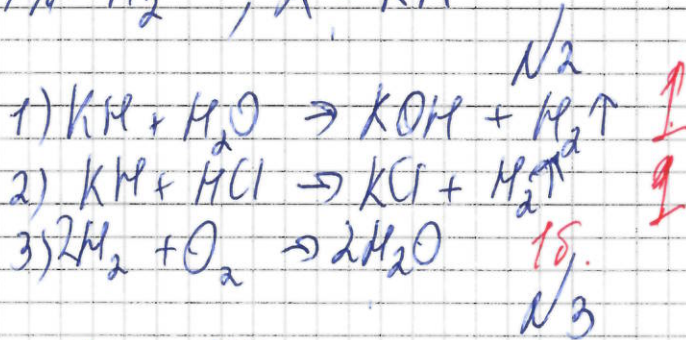 N2
1) KH + H₂O → KOH + H₂↑ 1
2) KH + HCl → KCl + H₂↑ 1
3) 2H₂ + O₂ → 2H₂O 1б.
N3